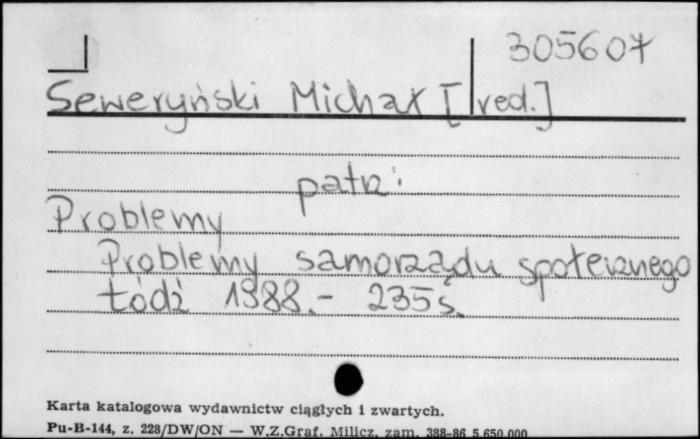 305607
Seweryński Michał [red.]
patrz:
Problemy
Problemy samorządu społecznego
Łódź 1988.- 235 s.
Karta katalogowa wydawnictw ciągłych i zwartych.
Pu-B-144, z. 228/DW/ON — W.Z.Graf. Milicz, zam. 388-86 5.650.000